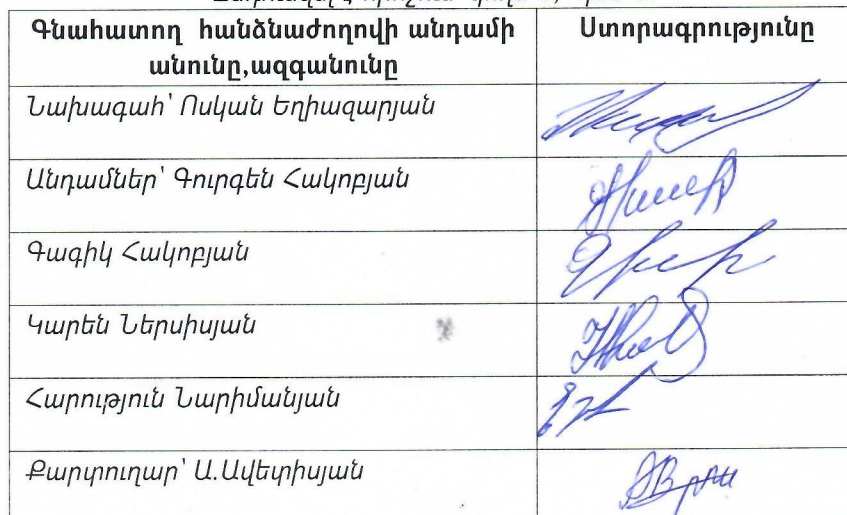 Գնահատող հանձնաժողովի անդամի
անունը,ազգանունը
Ստորագրությունը
Նախագահ՝ Ոսկան Եղիազարյան
Անդամներ՝ Գուրգեն Հակոբյան
Գագիկ Հակոբյան
Կարեն Ներսիսյան
Հարություն Նարիմանյան
Քարտուղար՝ Ա.Ավետիսյան